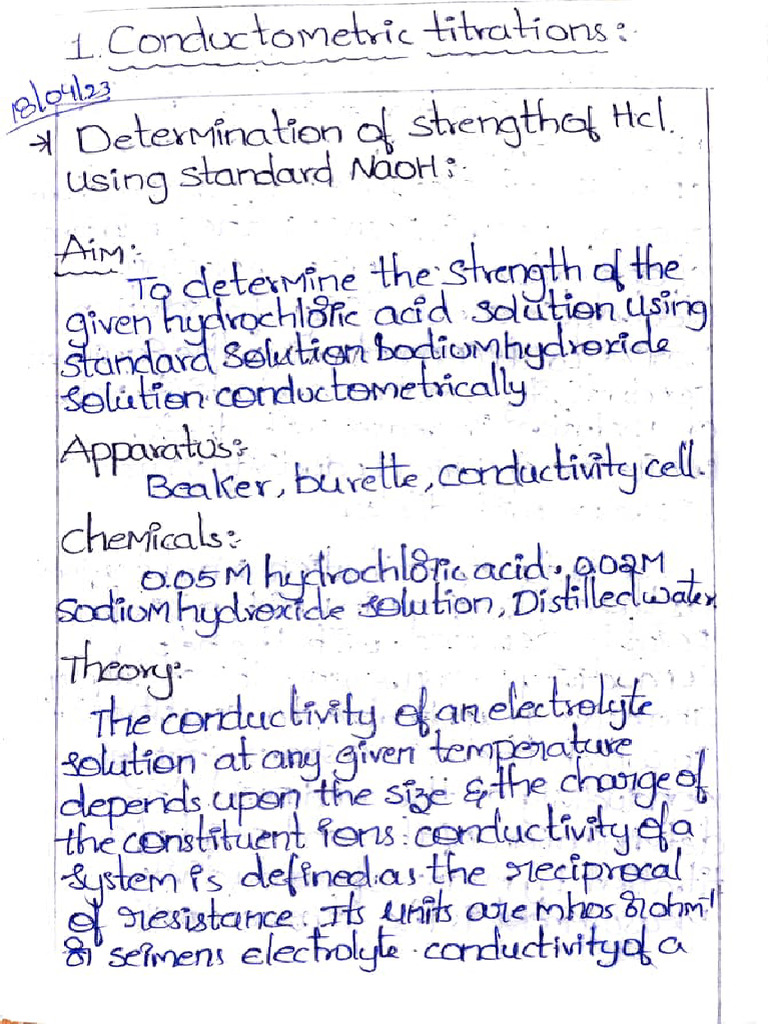 1. Conductometric titrations:
18/04/23
* Determination of strength of Hcl.
using standard NaoH:-
Aim:-
To determine the strength of the
given hydrochloric acid solution using
standard solution bodium hydroxide
solution conductometrically
Apparatus:-
Beaker, burette, conductivity cell.
Chemicals:-
0.05M hydrochloric acid. 0.02M
sodium hydroxide solution, Distilled water
Theory:-
The conductivity of an electrolyte
solution at any given temperature
depends upon the size & the charge of
the constituent ions. conductivity of a
system is defined as the reciprocal
of resistance. Its units are mhos or ohm⁻¹
or seimens electrolyte. conductivity of a